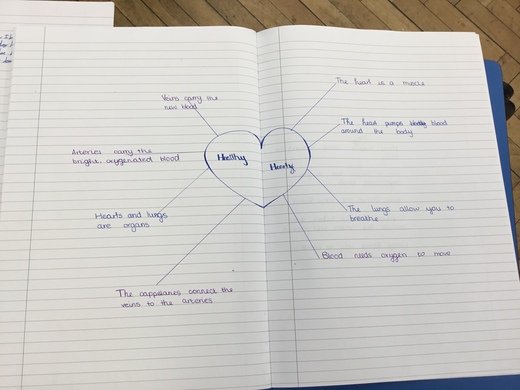 Veins carry the
new blood
Arteries carry the
bright, oxygenated blood
Hearts and lungs
are organs
The cappelaries connect the
veins to the arteries
Healthy
Hearty
The heart is a muscle
The heart pumps blood
around the body
The lungs allow you to
breathe
Blood needs oxygen to move